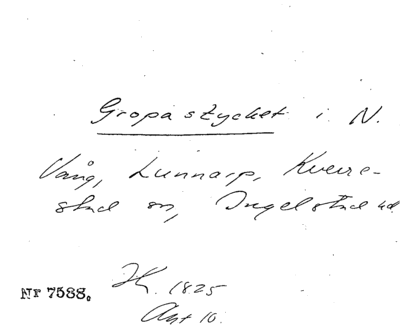 Gropastycket i N.
Vång, Lunnarp, Kverre-
stad sn, Ingelstad hd.
Nr 7588.
Hk. 1825
Akt 10.